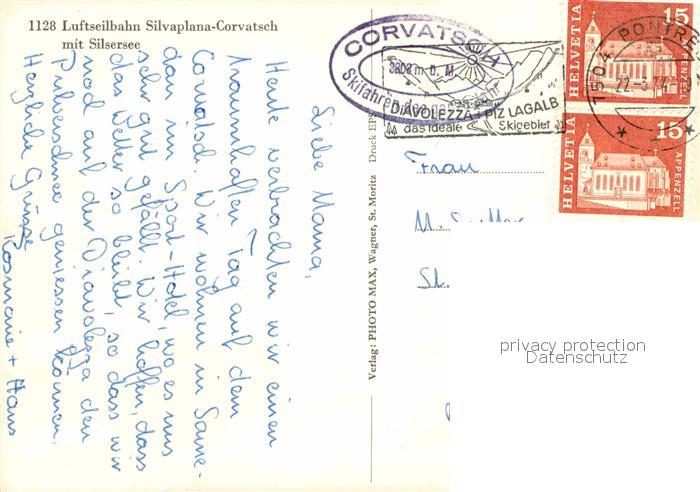 1128 Luftseilbahn Silvaplana-Corvatsch
mit Silsersee
Liebe Mama,
Heute verbrachten wir einen
traumhaften Tag auf dem
Corvatsch. Wir wohnen in Same-
dan im Sport-Hotel, wo es uns
sehr gut gefällt. Wir hoffen, dass
das Wetter so bleibt, so dass wir
noch auf der Diavolezza den
Pulverschnee geniessen können.
Herzliche Grüsse
Rosmarie + Hans
Verlag: PHOTO MAX, Wagner, St. Moritz Druck
CORVATSCH
3303 m ü. M.
Skifahren das ganze Jahr
DIAVOLEZZA / PIZ LAGALB
das ideale Skigebiet
7504 PONTRE
HELVETIA
15
APPENZELL
HELVETIA
15
APPENZELL
Frau
privacy protection
Datenschutz